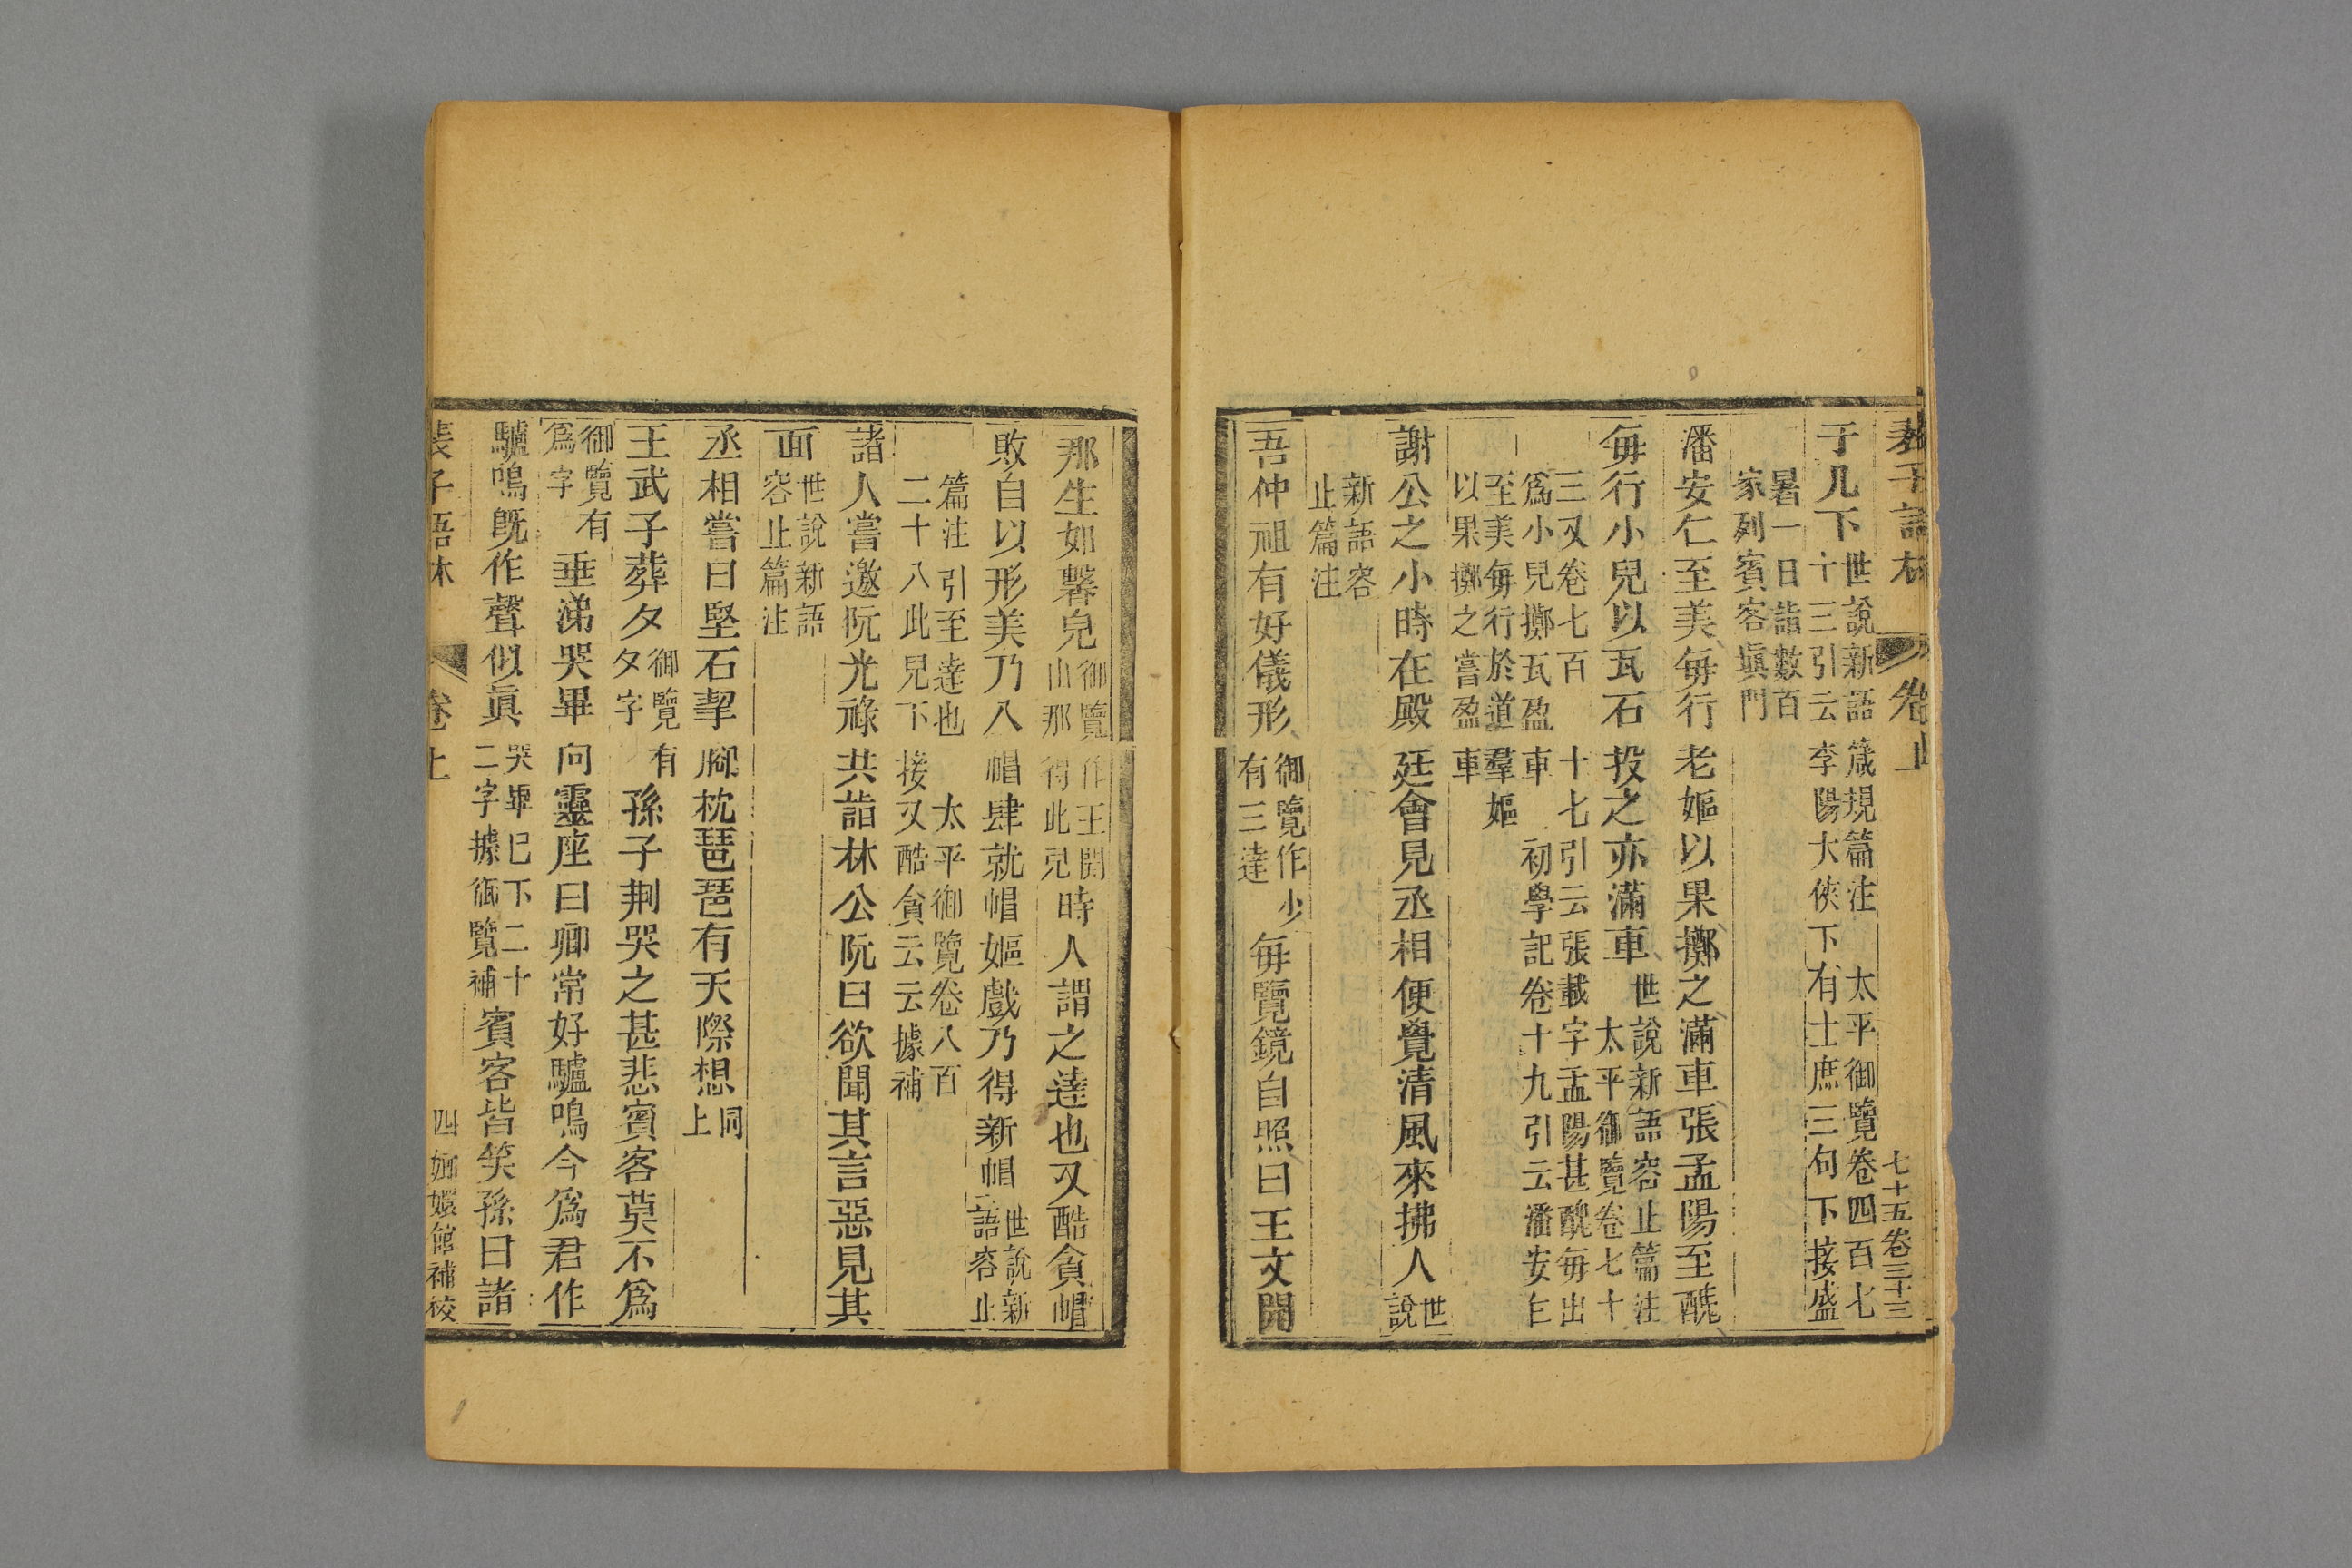 裴子語林 卷上 七十五卷三十三
于几下世說新語箴規篇注 太平御覽卷四百七十三引云李陽大俠下有士庶三句下接盛
暑一日詣數百家列賓客塡門
潘安仁至美每行老嫗以果擲之滿車張孟陽至醜
每行小兒以瓦石投之亦滿車世說新語容止篇注 太平御覽卷七十
三又卷七百十七引云張載字孟陽甚醜每出爲小兒擲瓦盈車 初學記卷十九引云潘安仁
至美每行於道羣嫗以果擲之嘗盈車
謝公之小時在殿廷會見丞相便覺清風來拂人世說
新語容止篇注
吾仲祖有好儀形御覽作少有三達每覽鏡自照曰王文開
那生如馨兒御覽作王開山那得此兒時人謂之達也又酷貧帽
敗自以形美乃八帽肆就帽嫗戲乃得新帽世說新語容止
篇注引至達也 太平御覽卷八百二十八此兒下接又酷貧云云據補
諸人嘗邀阮光祿共詣林公阮曰欲聞其言惡見其
面世說新語容止篇注
丞相嘗曰堅石挈腳枕琵琶有天際想同上
王武子葬夕御覽有夕字有孫子荆哭之甚悲賓客莫不爲
御覽有爲字垂涕哭畢向靈座曰卿常好驢鳴今爲君作
驢鳴旣作聲似眞哭畢巳下二十二字據御覽補賓客皆笑孫曰諸
裴子語林 卷上 四 嫏嬛館補校